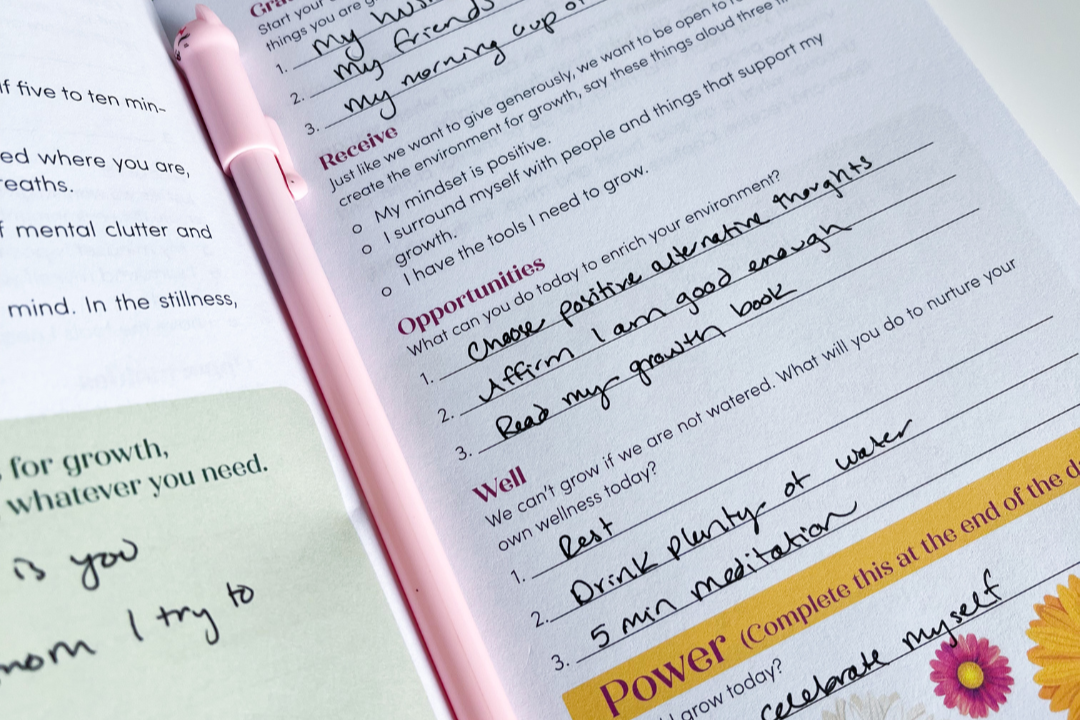 f five to ten min-
ed where you are,
reaths.
f mental clutter and
mind. In the stillness,
for growth,
whatever you need.
is you
mom I try to
Start your
things you are
1. my
2. my friends
3. my morning cup of
Receive
Just like we want to give generously, we want to be open to
create the environment for growth, say these things aloud three
My mindset is positive.
I surround myself with people and things that support my
growth.
I have the tools I need to grow.
Opportunities
What can you do today to enrich your environment?
1. Choose positive alternative thoughts
2. Affirm I am good enough
3. Read my growth book
Well
We can't grow if we are not watered. What will you do to nurture your
own wellness today?
1. Rest
2. Drink plenty of water
3. 5 min meditation
Power (Complete this at the end of the d
I grow today?
celebrate myself